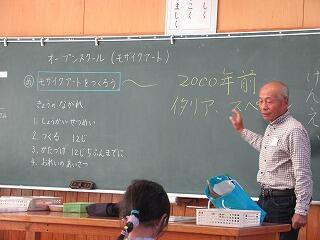 オープンスクール(モザイクアート)
め モザイクアートをつくろう
きょうのながれ
1. しょうかい せつめい
2. つくる 12じ
3. かたづけ 12じ5ふんまでに
4. おれいのあいさつ
2000年前
イタリア、スペ
げんえ